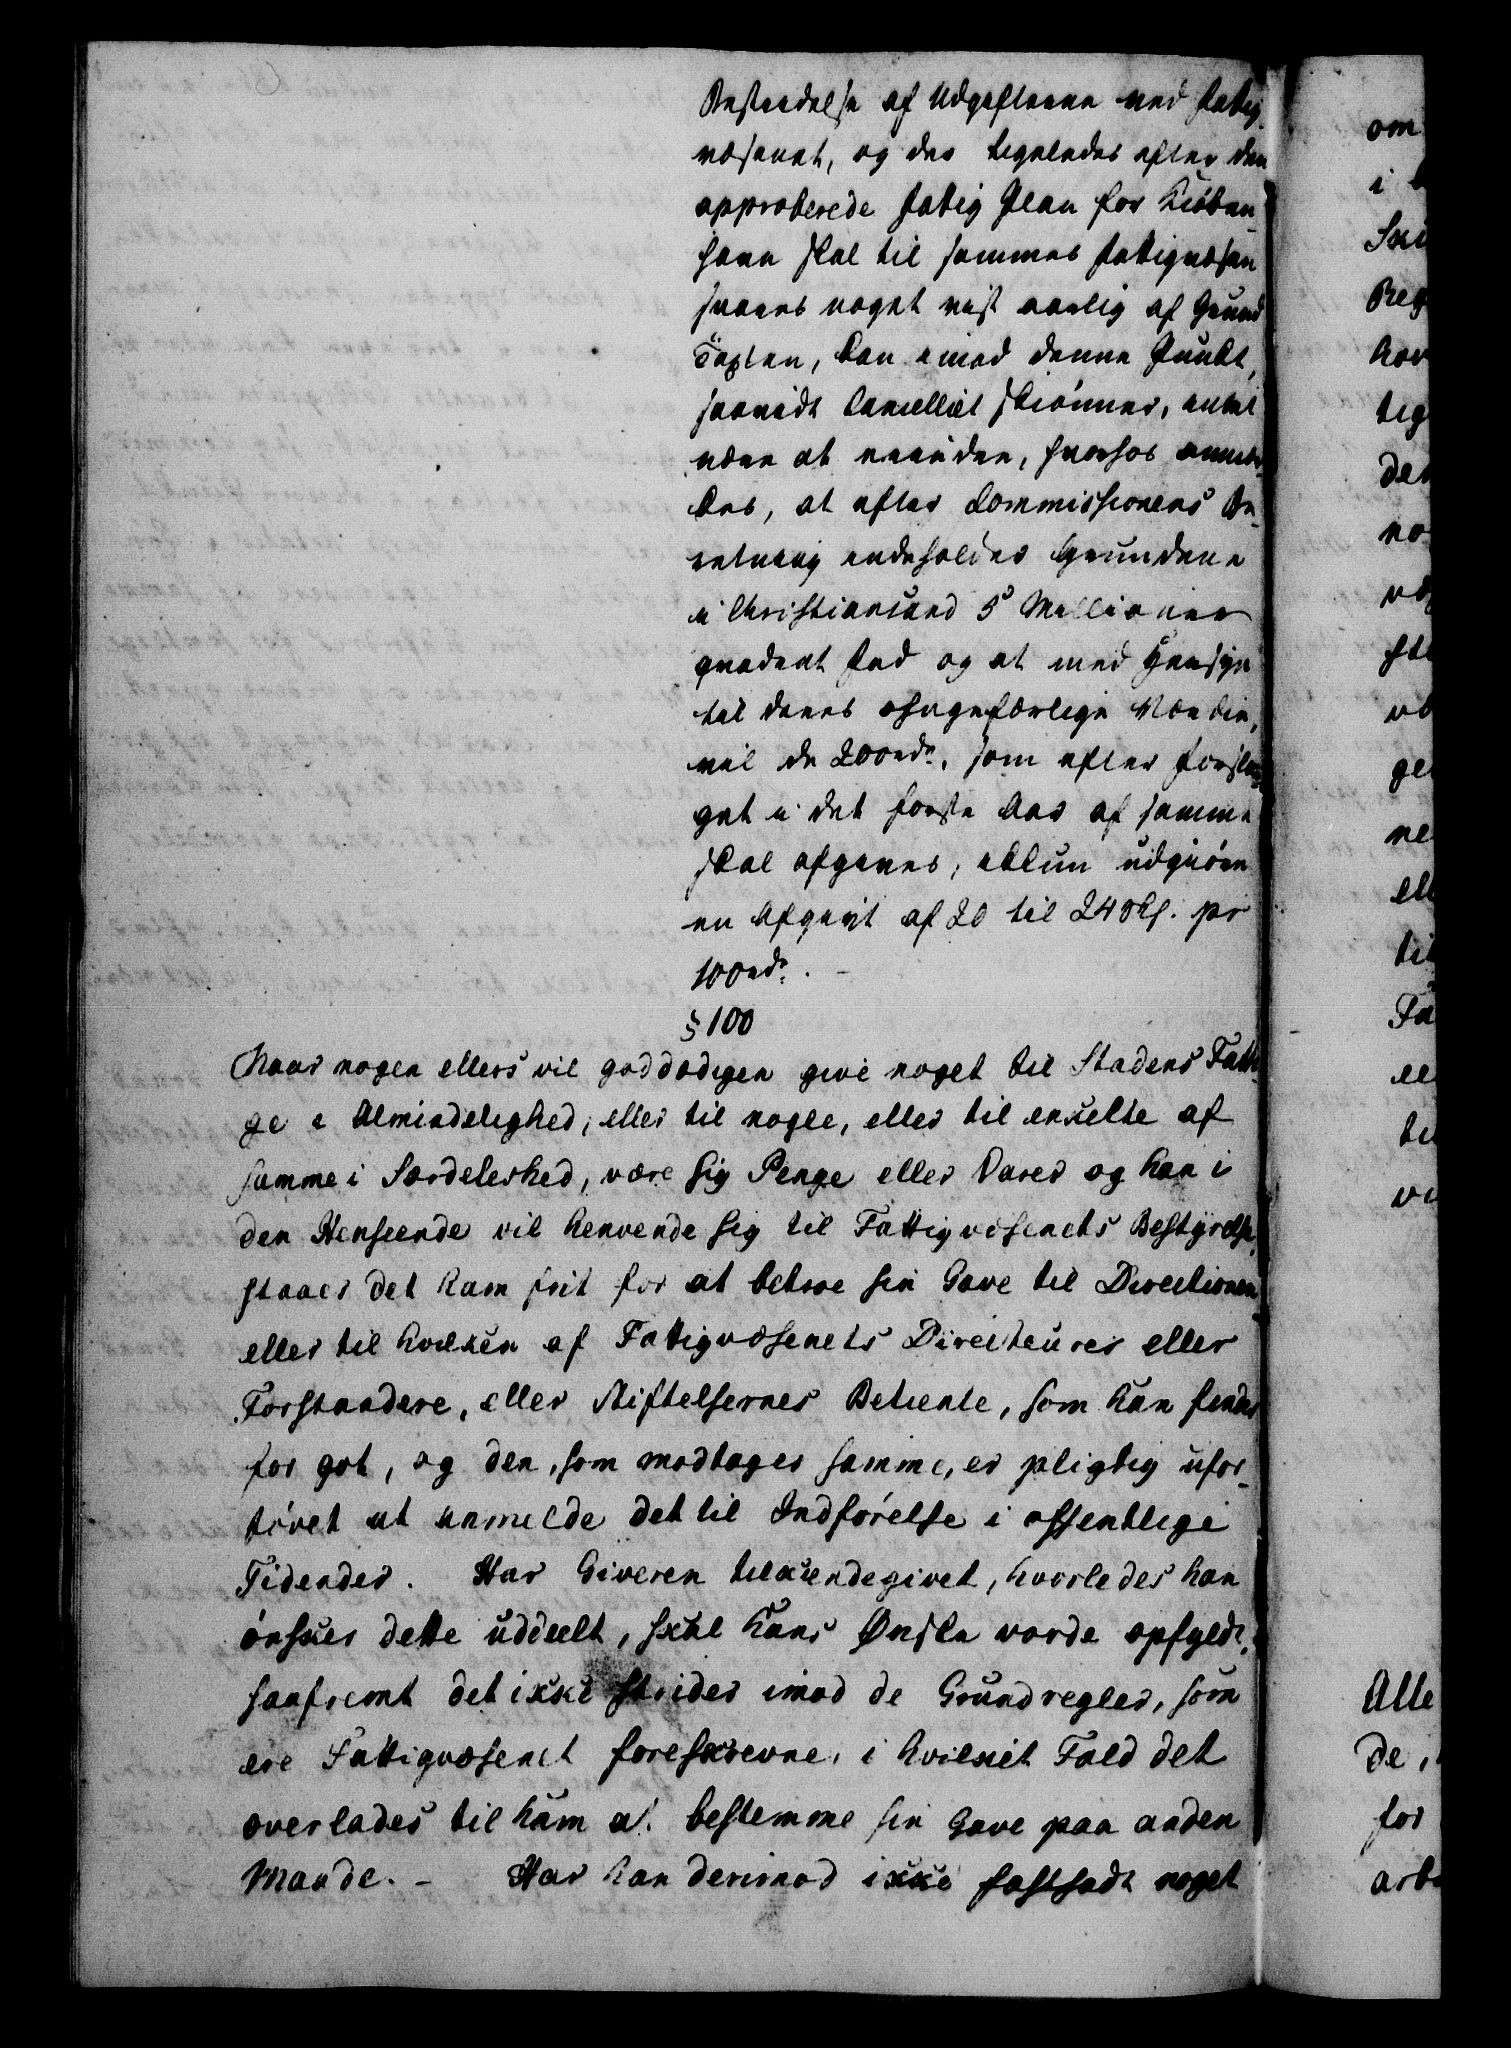 Bestridelse af Udgifterne ved Fattig-
væsenet, og der ligeledes efter den
approberede Fattig Plan for Kiöben-
havn skal til sammes Fattigvæsen
svares noget vist aarlig af Grund
Taxten, kan imod denne Punkt,
saavidt Cancelliet skiönner, intet
være at erindre, hvorhos anmær-
kes, at efter Commissionens Be-
retning indeholder Grundene
i Christiansand 5 Millioner
qvadrat Fod og at med Hensyn
til deres ohngefærlige Værdie,
vil de 200rd., som efter Forsla-
get i det første Aar af samme
skal afgives, ikkun udgiöre
en Afgivt af 20 til 24 sk. pr
100rd. -
§ 100
Naar nogen ellers vil goddædigen give noget til Stadens Fatti-
ge i Almindelighed, eller til nogle, eller til enkelte af
samme i Særdeleshed, være sig Penge eller Varer og han i
den Henseende vil henvende sig til Fattigvæsenets Bestyrelse,
staaer det ham frit for at betroe sin Gave til Directionen
eller til hvilken af Fattigvæsenets Directeurer eller
Forstandere, eller Stiftelsernes Betiente, som han finder
for got, og den, som modtager samme, er pligtig ufor-
tövet at anmelde det til Indförelse i offentlige
Tidender. Har Giveren tilkiendegivet, hvorledes han
önsker dette uddeelt, skal hans Ønske vorde opfyldt,
saafremt det ikke strider imod de Grundregler, som
ere Fattigvæsenet foreskrevne, i hvilket Fald det
overlades til ham at bestemme sin Gave paa anden
Maade. - Har han derimod ikke fastsadt noget